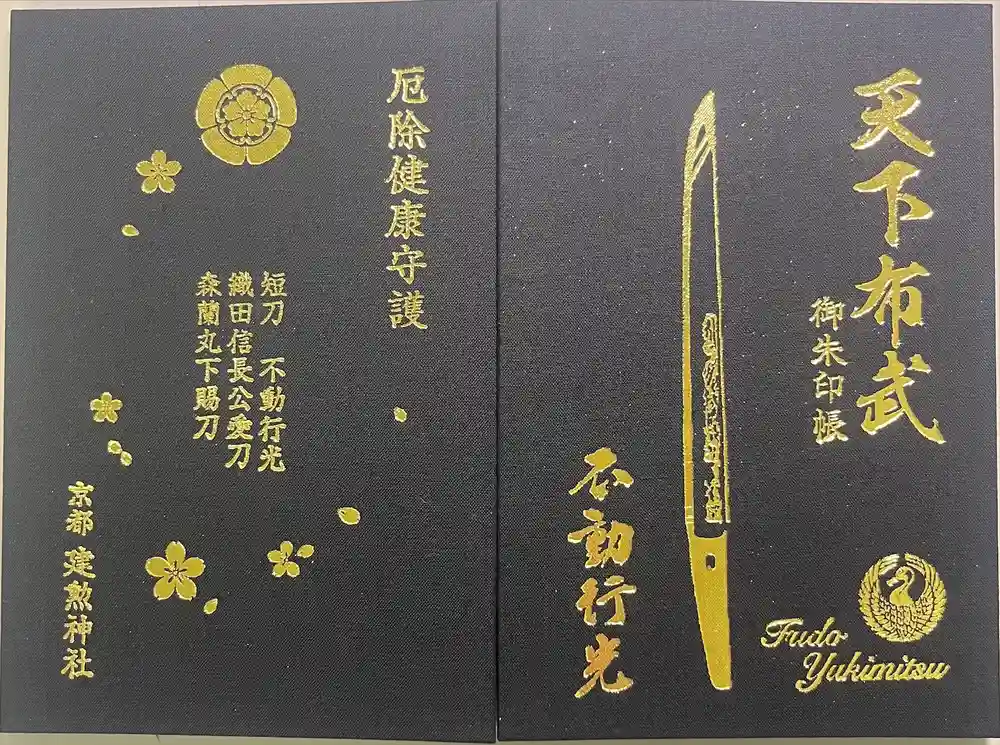 天下布武
御朱印帳
不動行光
Fudo
Yukimitsu
厄除健康守護
短刀 不動行光
織田信長公愛刀
森蘭丸下賜刀
京都 建勲神社